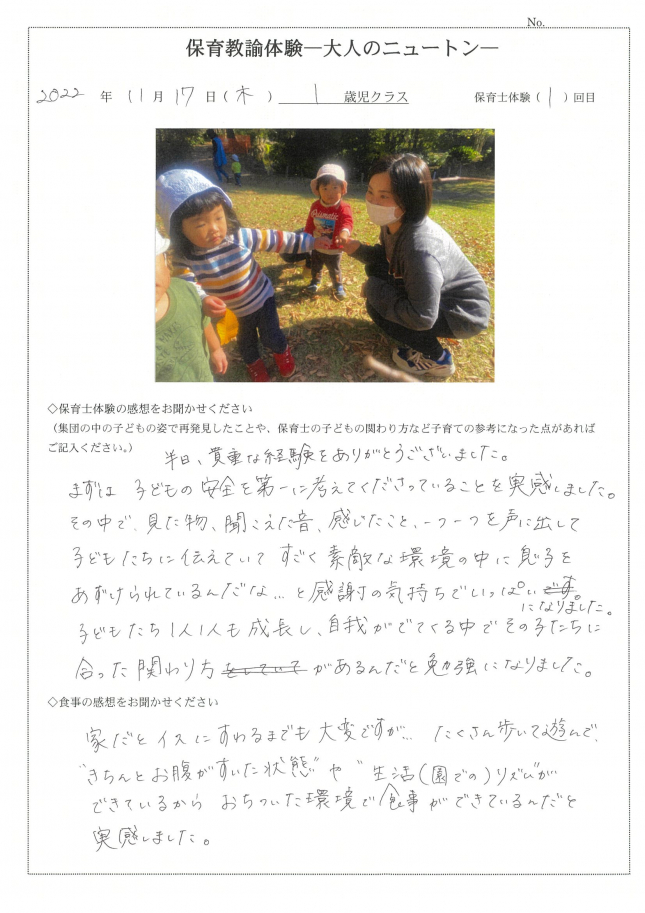 No.
保育教諭体験―大人のニュートン―
2022 年 11 月 17 日（ 木 ） 1 歳児クラス 保育士体験（ 1 ）回目
◇保育士体験の感想をお聞かせください
（集団の中の子どもの姿で再発見したことや、保育士の子どもの関わり方など子育ての参考になった点があれば
ご記入ください。）
半日、貴重な経験をありがとうございました。
まずは 子どもの安全を第一に考えてくださっていることを実感しました。
その中で、見た物、聞こえた音、感じたこと、一つ一つを声に出して
子どもたちに伝えていて すごく素敵な環境の中に息子を
あずけられているんだな… と感謝の気持ちでいっぱいになりました。
子どもたち1人1人も成長し、自我がでてくる中でその子たちに
合った関わり方があるんだと勉強になりました。
◇食事の感想をお聞かせください
家だとイスにすわるまでも大変ですが… たくさん歩いて遊んで、
"きちんとお腹がすいた状態" や "生活（園での）リズム"が
できているから おちついた環境で食事ができているんだと
実感しました。